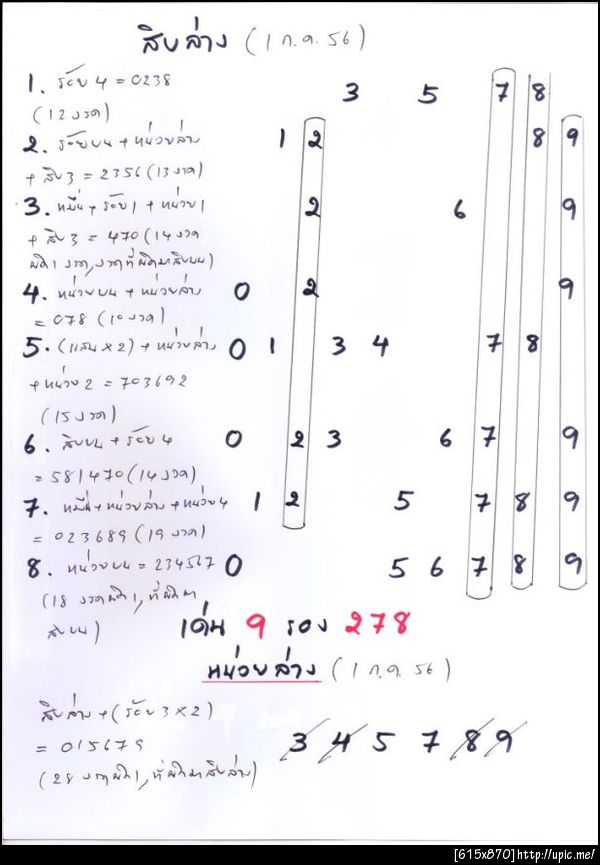 สิบล่าง (1 ก.ค. 56)
1. ร้อย 4 = 0238 3 5 7 8
(12 งวด)
2. ร้อยบน + หน่วยล่าง 1 2 8 9
+ สิบ 3 = 2356 (13 งวด)
3. หมื่น + ร้อย 1 + หน่วย 1 2 6 9
+ สิบ 3 = 470 (14 งวด
ผิด 1 งวด, งวดที่ผิดมาสิบบน)
4. หน่วยบน + หน่วยล่าง 0 2 9
= 078 (10 งวด)
5. (แสน x 2) + หน่วยล่าง 0 1 3 4 7 8
+ หน่วย 2 = 703692
(15 งวด)
6. สิบบน + ร้อย 4 0 2 3 6 7 9
= 581470 (14 งวด)
7. หมื่น + หน่วยล่าง + หน่วย 4 1 2 5 7 8 9
= 023689 (19 งวด)
8. หน่วยบน = 234567 0 5 6 7 8 9
(18 งวดผิด 1, ที่ผิดมา
สิบบน)
เด่น 9 รอง 278
หน่วยล่าง (1 ก.ค. 56)
สิบล่าง + (ร้อย 3 x 2)
= 015679 3 4 5 7 8 9
(28 งวดผิด 1, ที่ผิดมาสิบล่าง)
[615x870]http://upic.me/